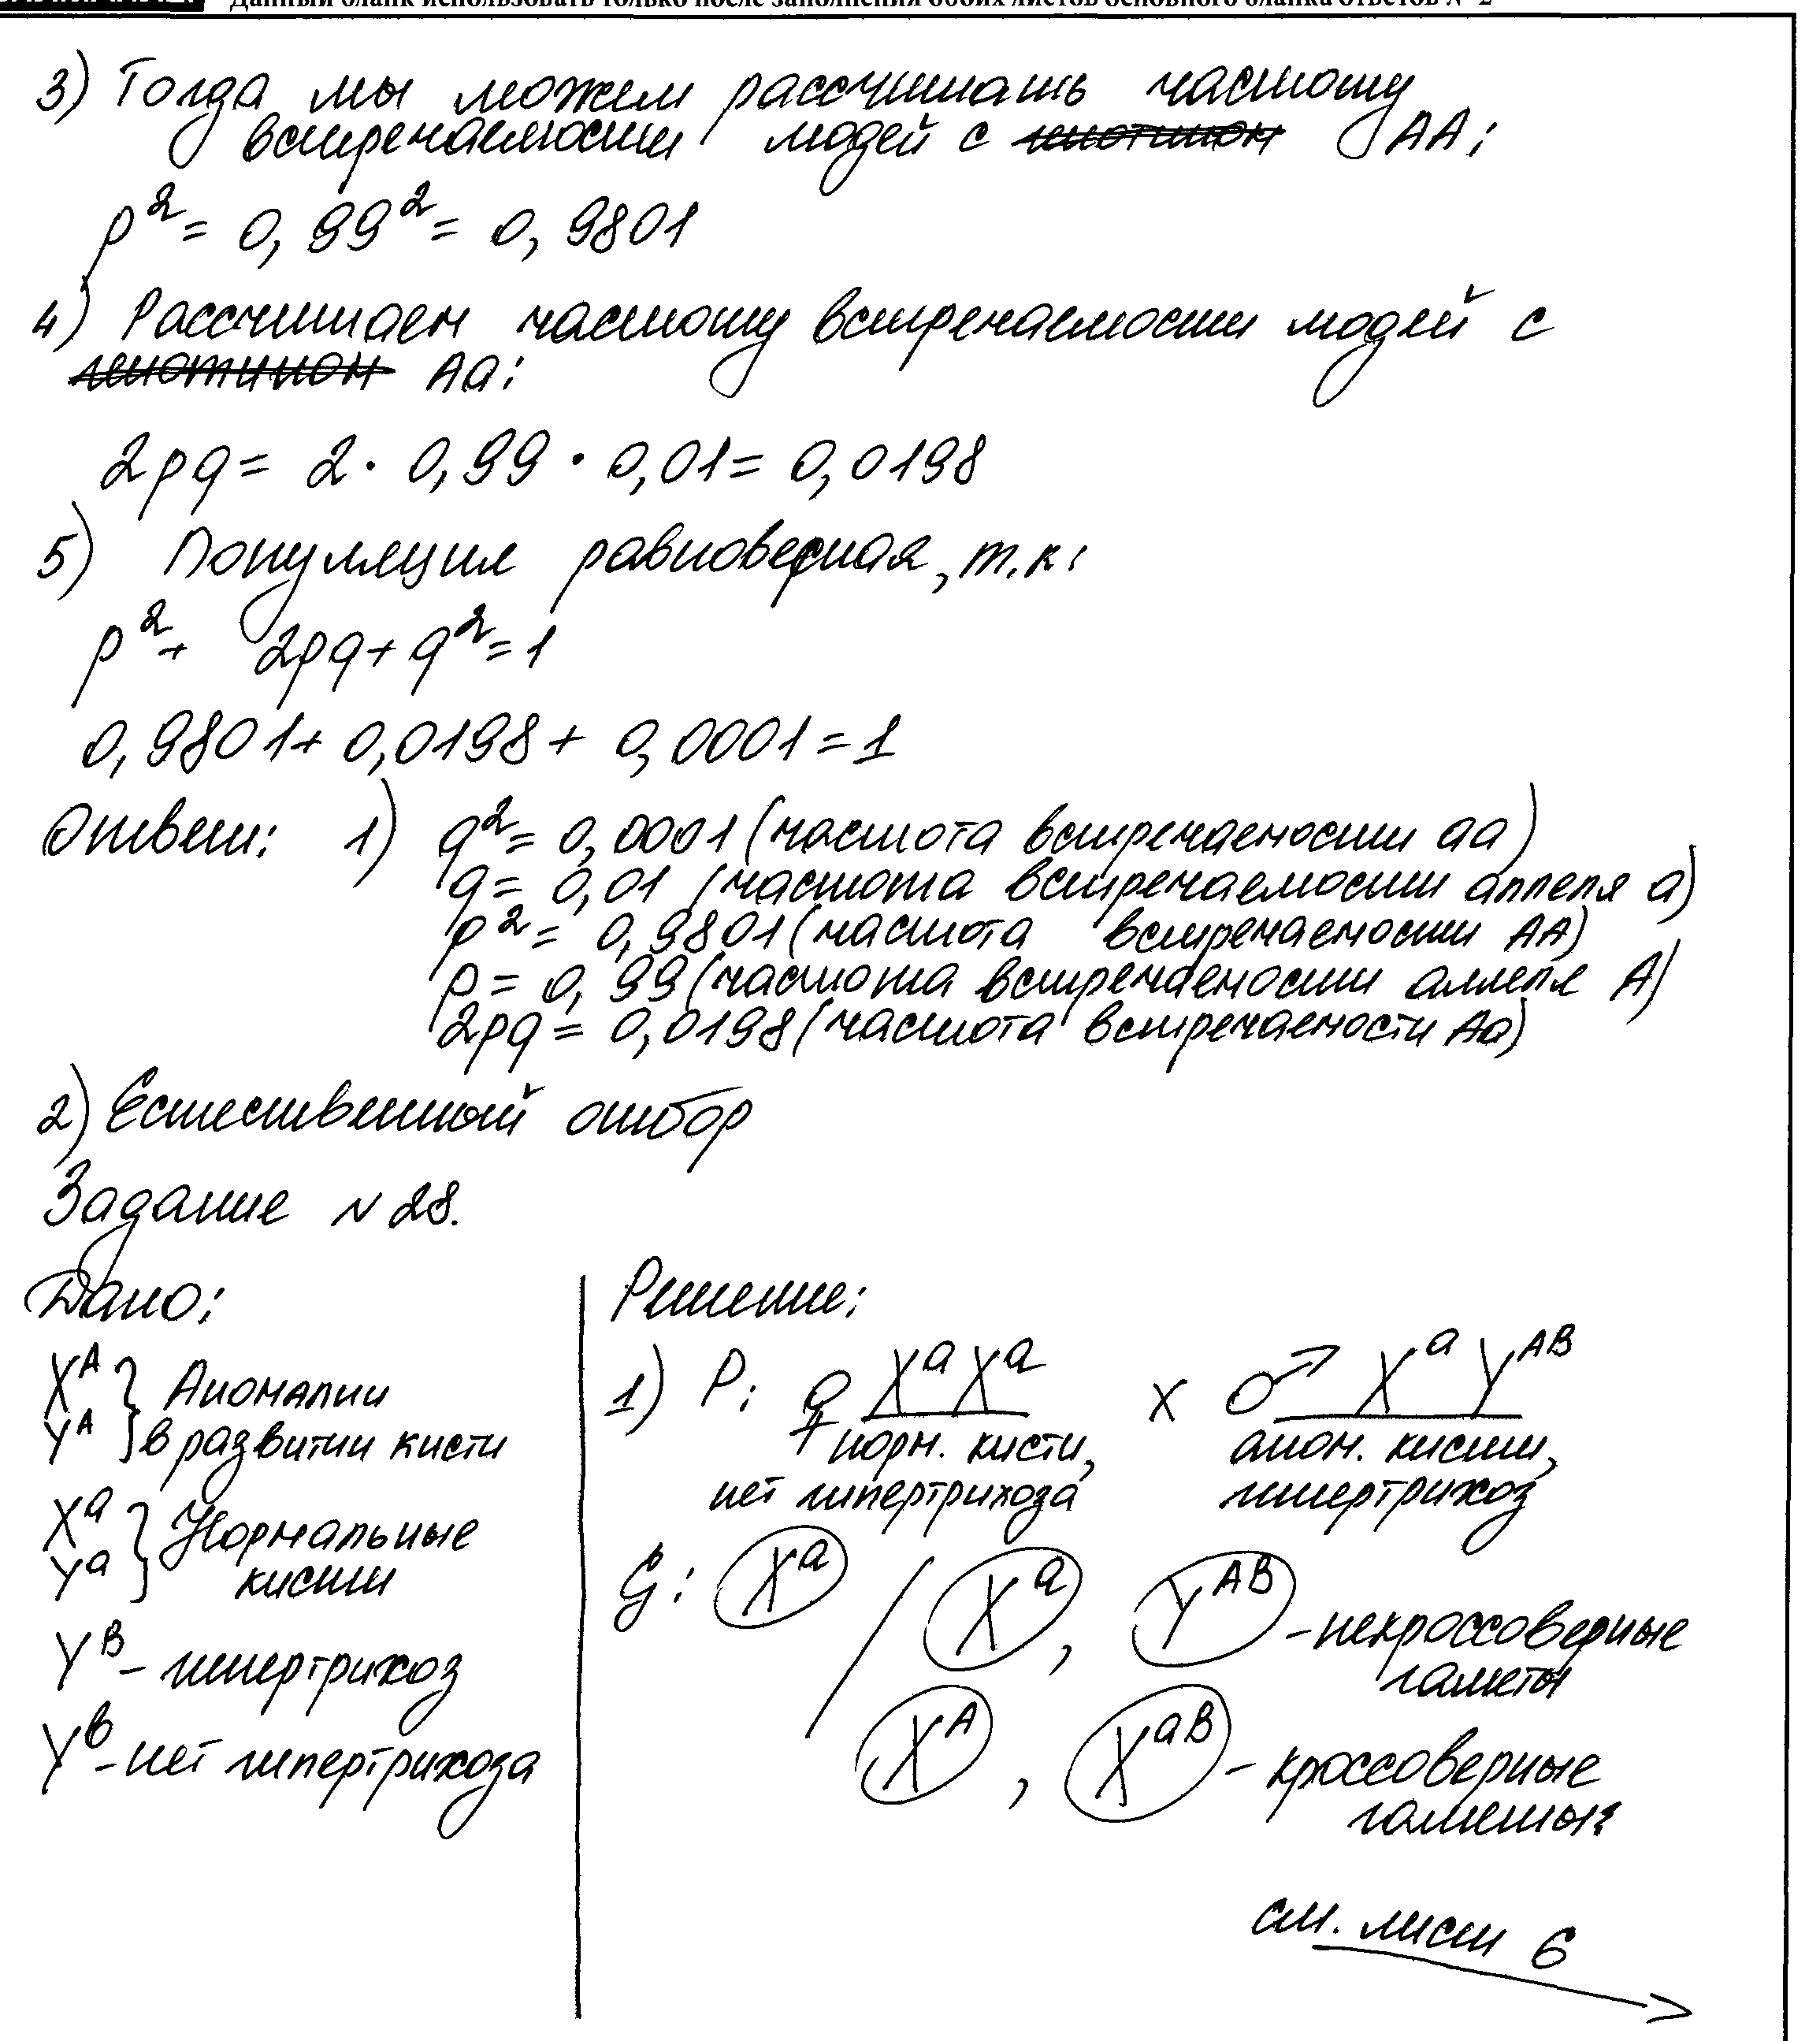 Данный бланк использовать только после заполнения обоих листов основного бланка ответов № 2
3) Тогда мы можем рассчитать частоту
встречаемости людей с ~~генотипом~~ AA:
p² = 0,99² = 0,9801
4) Рассчитаем частоту встречаемости людей с
~~генотипом~~ Aa:
2pq = 2 · 0,99 · 0,01 = 0,0198
5) Популяция равновесная, т.к:
p² + 2pq + q² = 1
0,9801 + 0,0198 + 0,0001 = 1
Ответ: 1) q² = 0,0001 (частота встречаемости aa)
q = 0,01 (частота встречаемости аллеля a)
p² = 0,9801 (частота встречаемости AA)
p = 0,99 (частота встречаемости аллеля A)
2pq = 0,0198 (частота встречаемости Aa)
2) Естественный отбор
Задание №28.
Дано:
X^A } Аномалии
Y^A } в развитии кисти
X^a } Нормальные
Y^a } кисти
Y^B – гипертрихоз
Y^b – нет гипертрихоза
Решение:
1) P: ♀ X^a X^a x ♂ X^a Y^AB
норм. кисти, аном. кисти,
нет гипертрихоза гипертрихоз
G: X^a / X^a, Y^AB – некроссоверные
гаметы
X^A, X^aB – кроссоверные
гаметы
см. лист 6